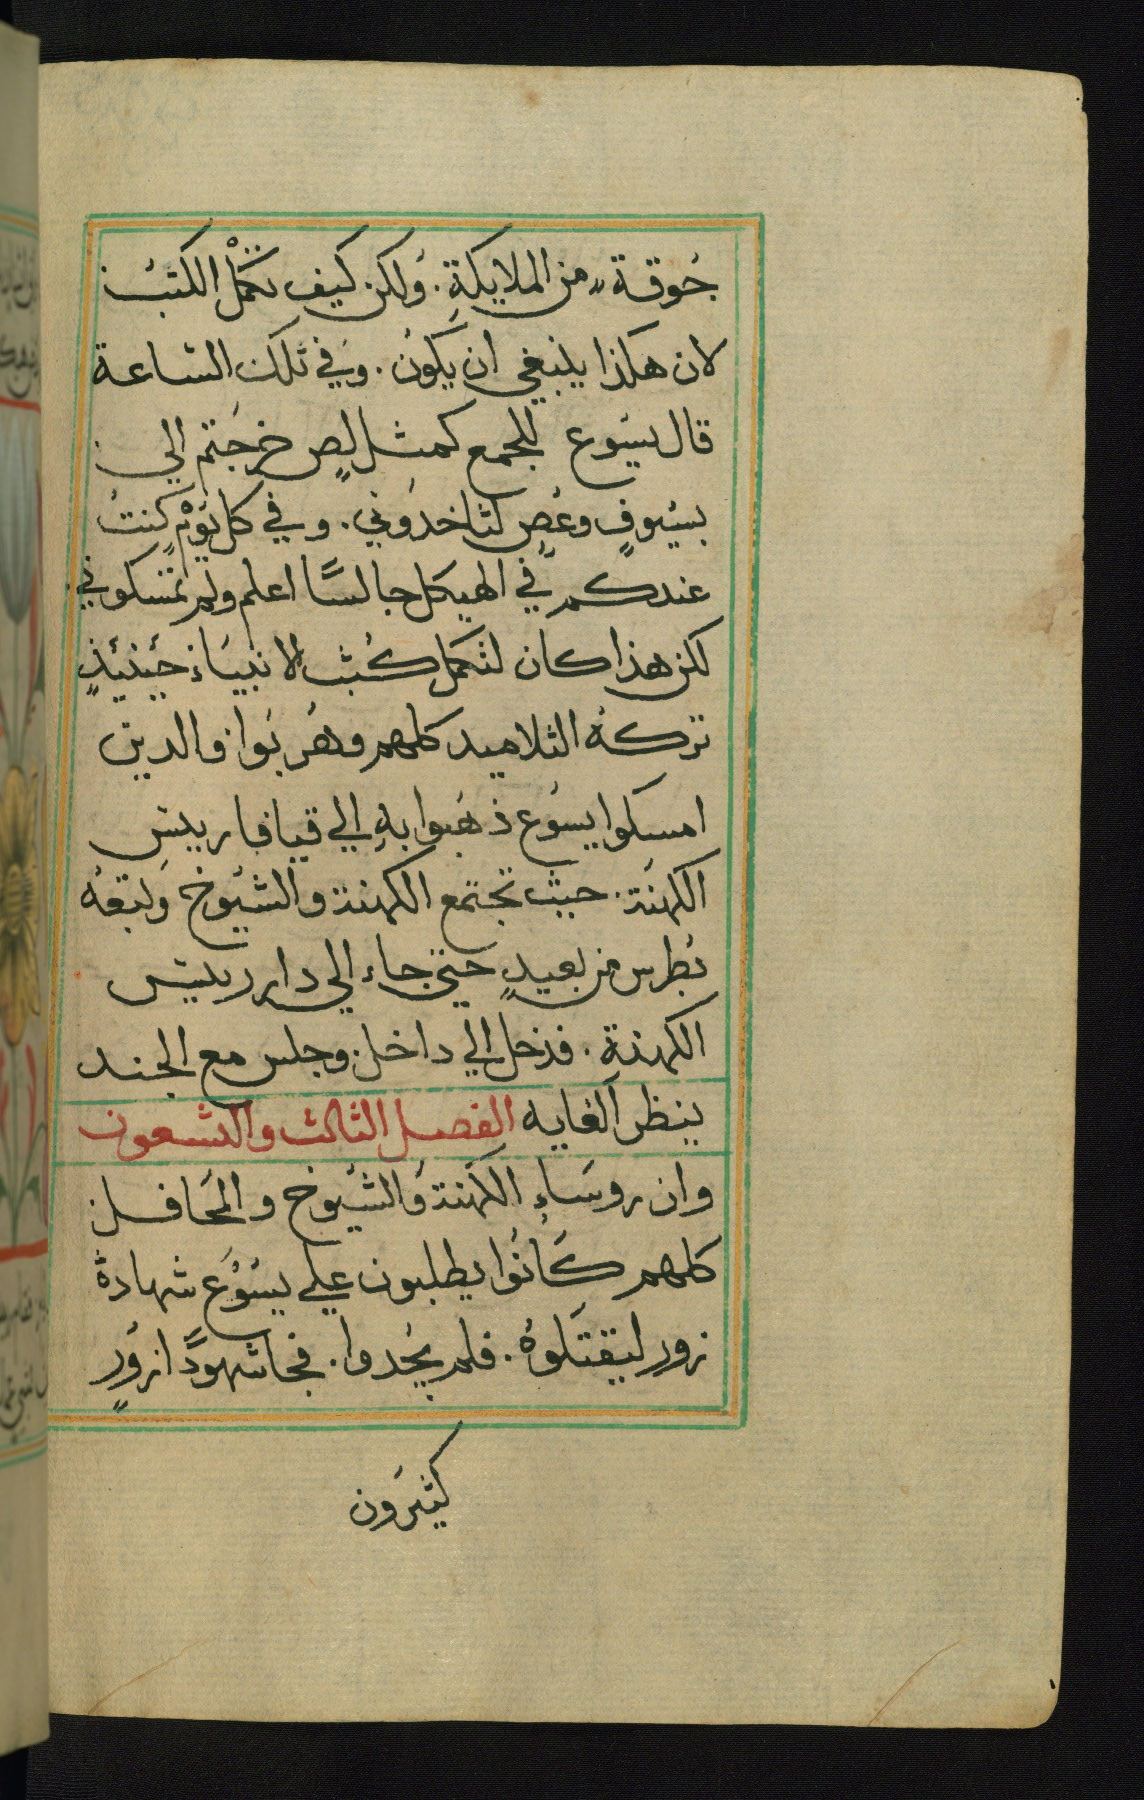 جُوقة من الملايكةِ. وَلكن كيف تكمَلْ الكتبُ
لان هكذا ينبغي ان يكَونُ. وَفي تلكَ السّاعة
قال يسَوع للجمع كمثل لِصٍ خرجَتم الي
بسيُوفٍ وعُصٍ لتاخدوُني. وفي كل يَوْمٍ كنتُ
عندكم في الهيكل جالسًا اعلم ولم تمسكوني
لكن هذا كان لتكمل كتُب الانبيَاء حيَنيَئذٍ
تركهُ التلاميد كلهم وهَربَوا والدين
امسكوا يسوُع ذهَبوا بهِ الي قيافا رييسِ
الكهنَة. حيث تجتمع الكهنة والشيُوخ وَتبعَهُ
بُطرس من بعيدٍ حتي جاء الي دار رييس
الكهنةِ. فدخل الي داخل وجلس مع الجند
ينظر الغايه الفصل الثالث والتسعون
وان روسَاءِ الكهَنة وَالشيُوخ والمحَافل
كلهم كَانُوا يطلبون علي يسُوَع شهادة
زور ليقتَلوهُ. فلم يجُدوا. فجا شهودًا زوُرٍ
كثيرَون